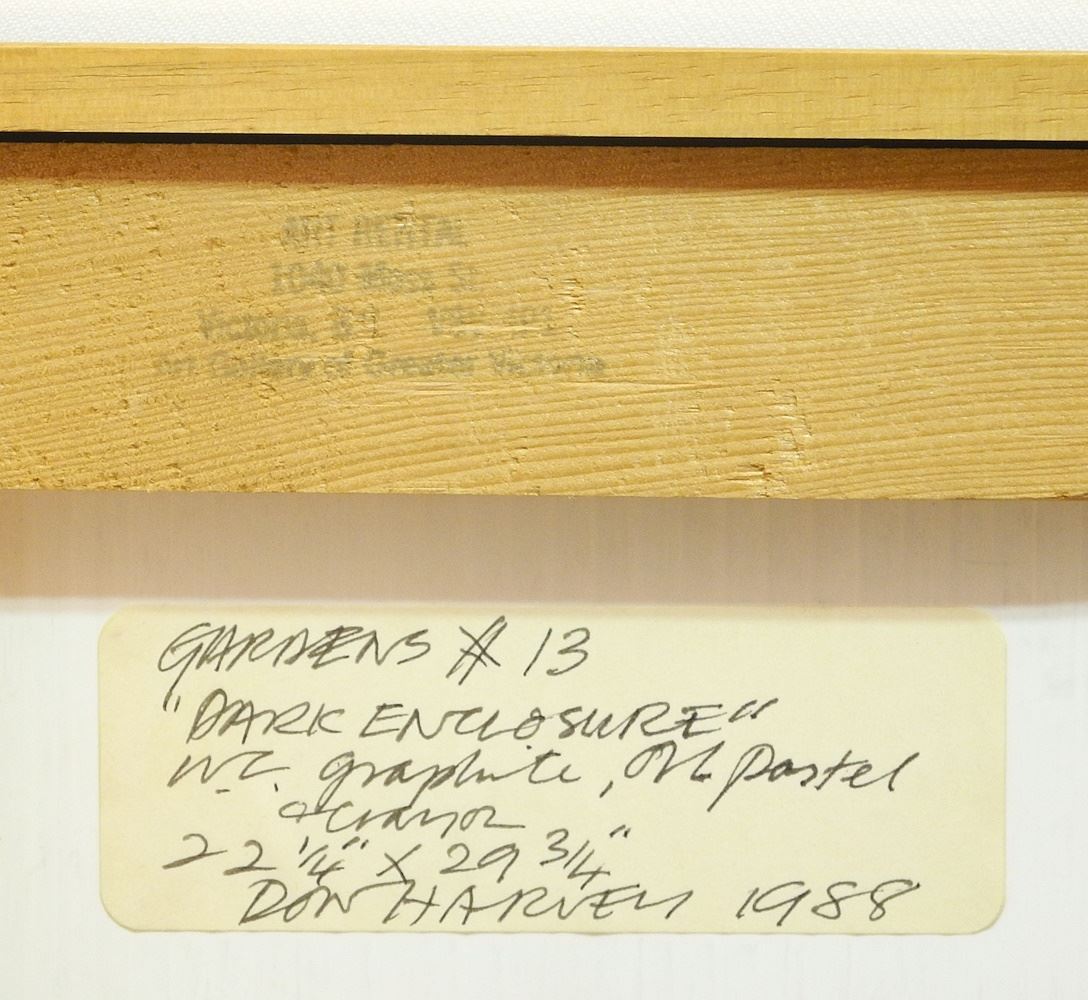 ART RENTAL
1040 Moss St.
Victoria, B.C.
Art Gallery of Greater Victoria
GARDENS # 13
"DARK ENCLOSURE"
W.C. graphite, Oil pastel
& crayon
22 1/4" X 29 3/4"
DON HARVEY 1988